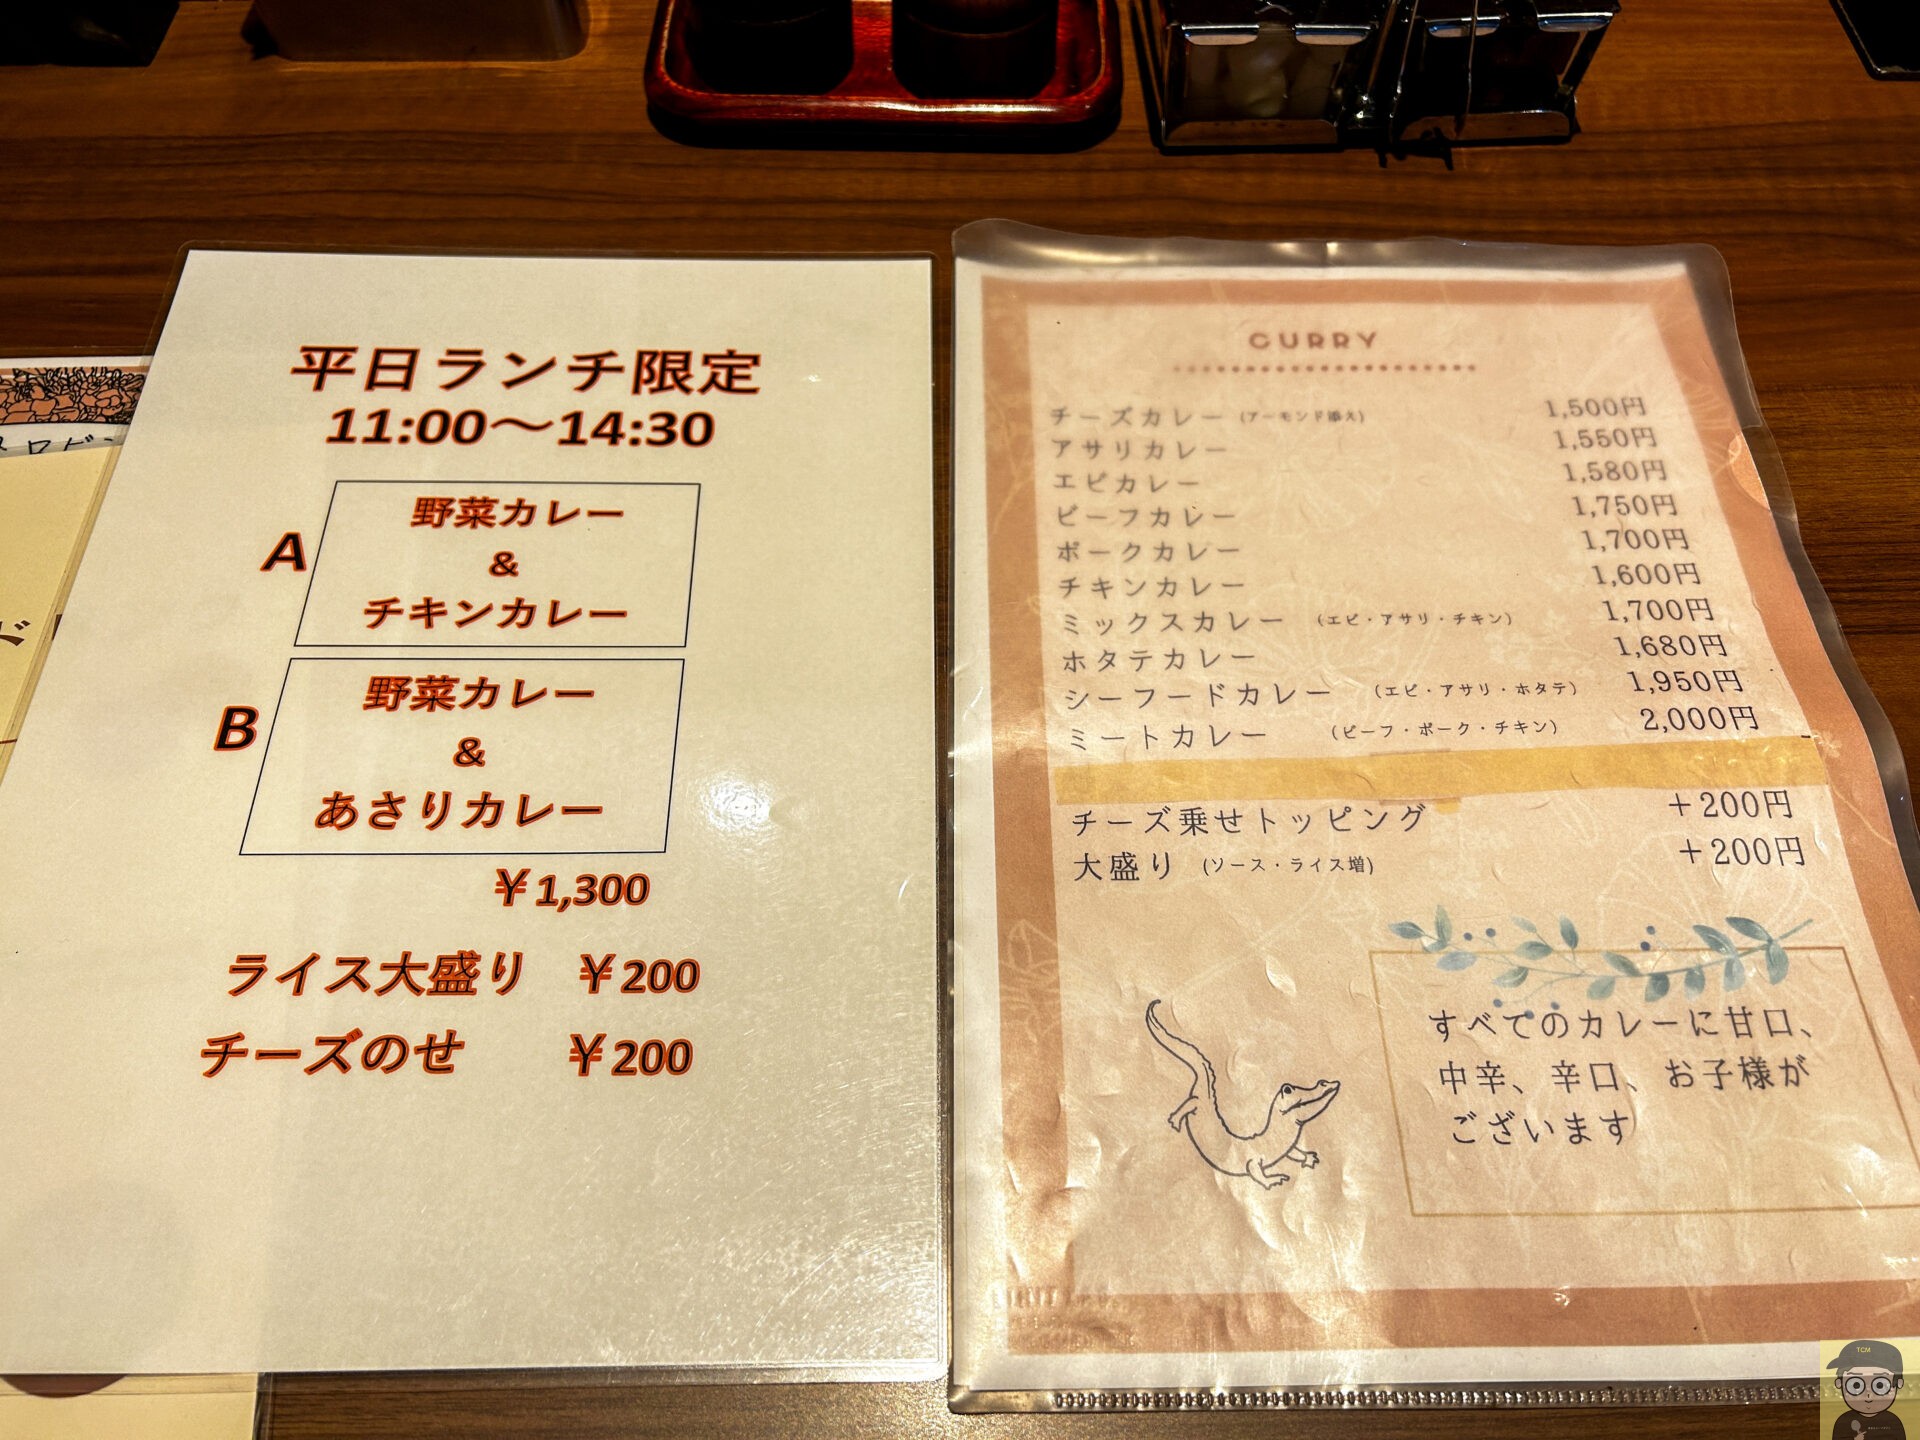 平日ランチ限定
11:00〜14:30
A
野菜カレー
&
チキンカレー
B
野菜カレー
&
あさりカレー
¥1,300
ライス大盛り ¥200
チーズのせ ¥200
CURRY
チーズカレー (アーモンド添え) 1,500円
アサリカレー 1,550円
エビカレー 1,580円
ビーフカレー 1,750円
ポークカレー 1,700円
チキンカレー 1,600円
ミックスカレー (エビ・アサリ・チキン) 1,700円
ホタテカレー 1,680円
シーフードカレー (エビ・アサリ・ホタテ) 1,950円
ミートカレー (ビーフ・ポーク・チキン) 2,000円
チーズ乗せトッピング +200円
大盛り (ソース・ライス増) +200円
すべてのカレーに甘口、
中辛、辛口、お子様が
ございます
TCM